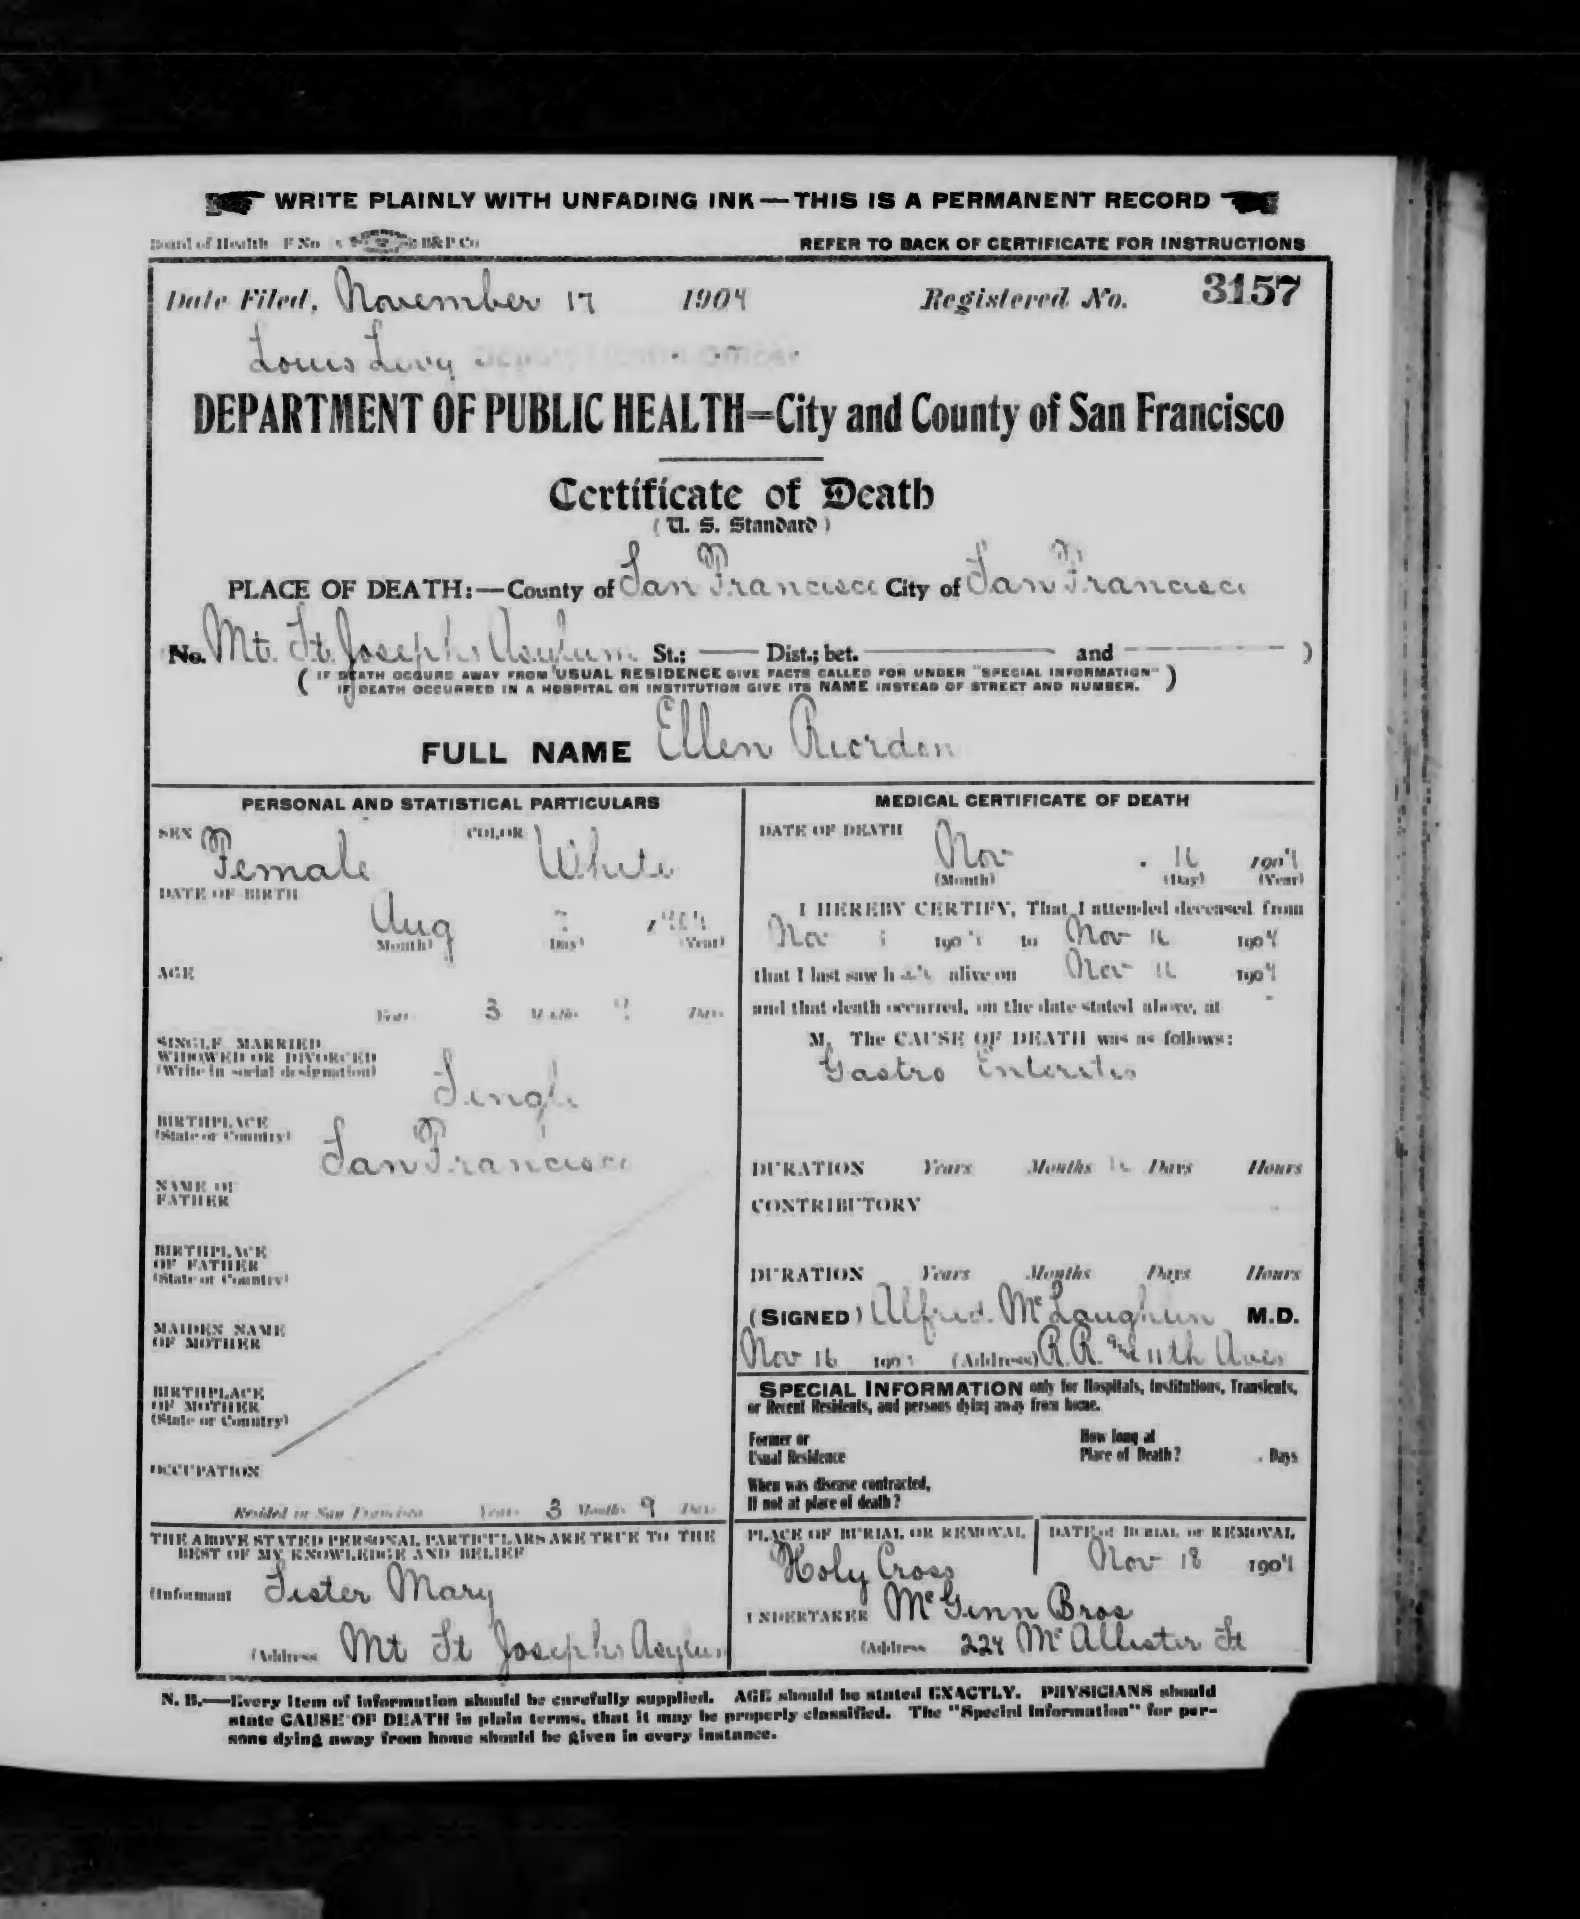 WRITE PLAINLY WITH UNFADING INK—THIS IS A PERMANENT RECORD
Board of Health F No B&P Co REFER TO BACK OF CERTIFICATE FOR INSTRUCTIONS
Date Filed, November 17 1904 Registered No. 3157
Louis Levy
DEPARTMENT OF PUBLIC HEALTH=City and County of San Francisco
Certificate of Death
(U. S. Standard)
PLACE OF DEATH:—County of San Francisco City of San Francisco
No. Mt. St. Josephs Asylum St.; —— Dist.; bet. —— and —— )
( IF DEATH OCCURS AWAY FROM USUAL RESIDENCE GIVE FACTS CALLED FOR UNDER "SPECIAL INFORMATION"
IF DEATH OCCURRED IN A HOSPITAL OR INSTITUTION GIVE ITS NAME INSTEAD OF STREET AND NUMBER. )
FULL NAME Ellen Riordan
PERSONAL AND STATISTICAL PARTICULARS
SEX Female COLOR White
DATE OF BIRTH
Aug 7 1904
(Month) (Day) (Year)
AGE
Years 3 Months 9 Days
SINGLE MARRIED
WIDOWED OR DIVORCED
(Write in social designation) Single
BIRTHPLACE
(State or Country) San Francisco
NAME OF
FATHER
BIRTHPLACE
OF FATHER
(State or Country)
MAIDEN NAME
OF MOTHER
BIRTHPLACE
OF MOTHER
(State or Country)
OCCUPATION
Resided in San Francisco Years 3 Months 9 Days
THE ABOVE STATED PERSONAL PARTICULARS ARE TRUE TO THE
BEST OF MY KNOWLEDGE AND BELIEF
(Informant Sister Mary
(Address Mt St Josephs Asylum
MEDICAL CERTIFICATE OF DEATH
DATE OF DEATH
Nov 16 1904
(Month) (Day) (Year)
I HEREBY CERTIFY, That I attended deceased from
Nov 1904 to Nov 16 1904
that I last saw her alive on Nov 16 1904
and that death occurred, on the date stated above, at
M. The CAUSE OF DEATH was as follows:
Gastro Enteritis
DURATION Years Months Days Hours
CONTRIBUTORY
DURATION Years Months Days Hours
(SIGNED) Alfred McLaughlin M.D.
Nov 16 190 (Address) R.R. and 11th Aves
SPECIAL INFORMATION only for Hospitals, Institutions, Transients,
or Recent Residents, and persons dying away from home.
Former or
Usual Residence
How long at
Place of Death? Days
When was disease contracted,
If not at place of death?
PLACE OF BURIAL OR REMOVAL
Holy Cross
DATE of BURIAL or REMOVAL
Nov 18 1904
UNDERTAKER McGinn Bros
(Address 224 McAllister St
N. B.—Every item of information should be carefully supplied. AGE should be stated EXACTLY. PHYSICIANS should
state CAUSE OF DEATH in plain terms, that it may be properly classified. The "Special Information" for per-
sons dying away from home should be given in every instance.